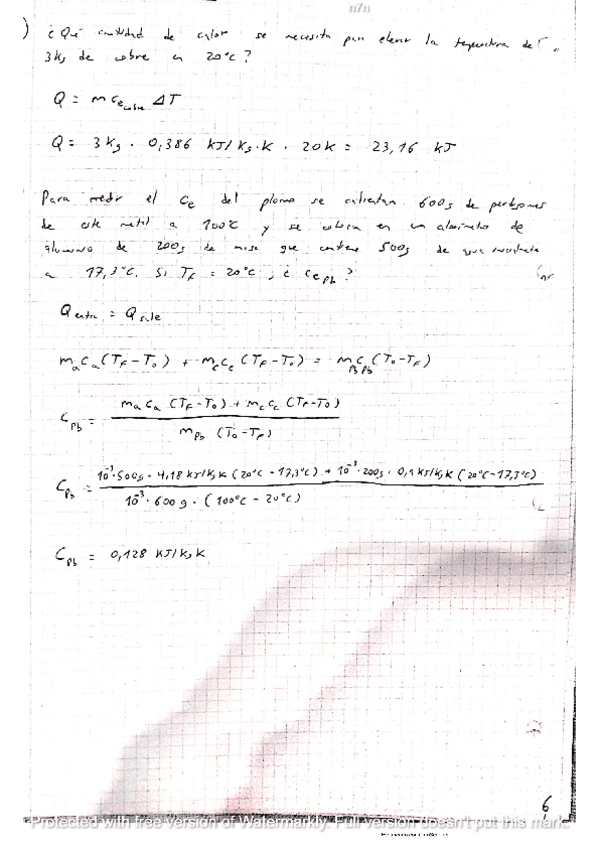 n7n
) ¿Qué cantidad de calor se necesita para elevar la temperatura de
3 kg de cobre en 20°C?
Q = m c e cobre ΔT
Q = 3 Kg · 0,386 KJ/Kg·K · 20K = 23,16 KJ
Para medir el ce del plomo se calientan 600g de perdigones
de este metal a 100°C y se colocan en un calorímetro de
aluminio de 200g de masa que contiene 500g de agua
a 17,3°C. Si TF = 20°C, ¿ce pb?
Q entra = Q sale
ma ca (TF - To) + mc cc (TF - To) = mPb cPb (To - TF)
CPb = ma ca (TF - To) + mc cc (TF - To) / mPb (To - TF)
CPb = 10⁻³·500g · 4,18 KJ/Kg K (20°C - 17,3°C) + 10⁻³·200g · 0,9 KJ/Kg K (20°C - 17,3°C) / 10⁻³·600g · (100°C - 20°C)
CPb = 0,128 KJ/Kg K
6
Protected with free version of Watermarkly. Full version doesn't put this mark.